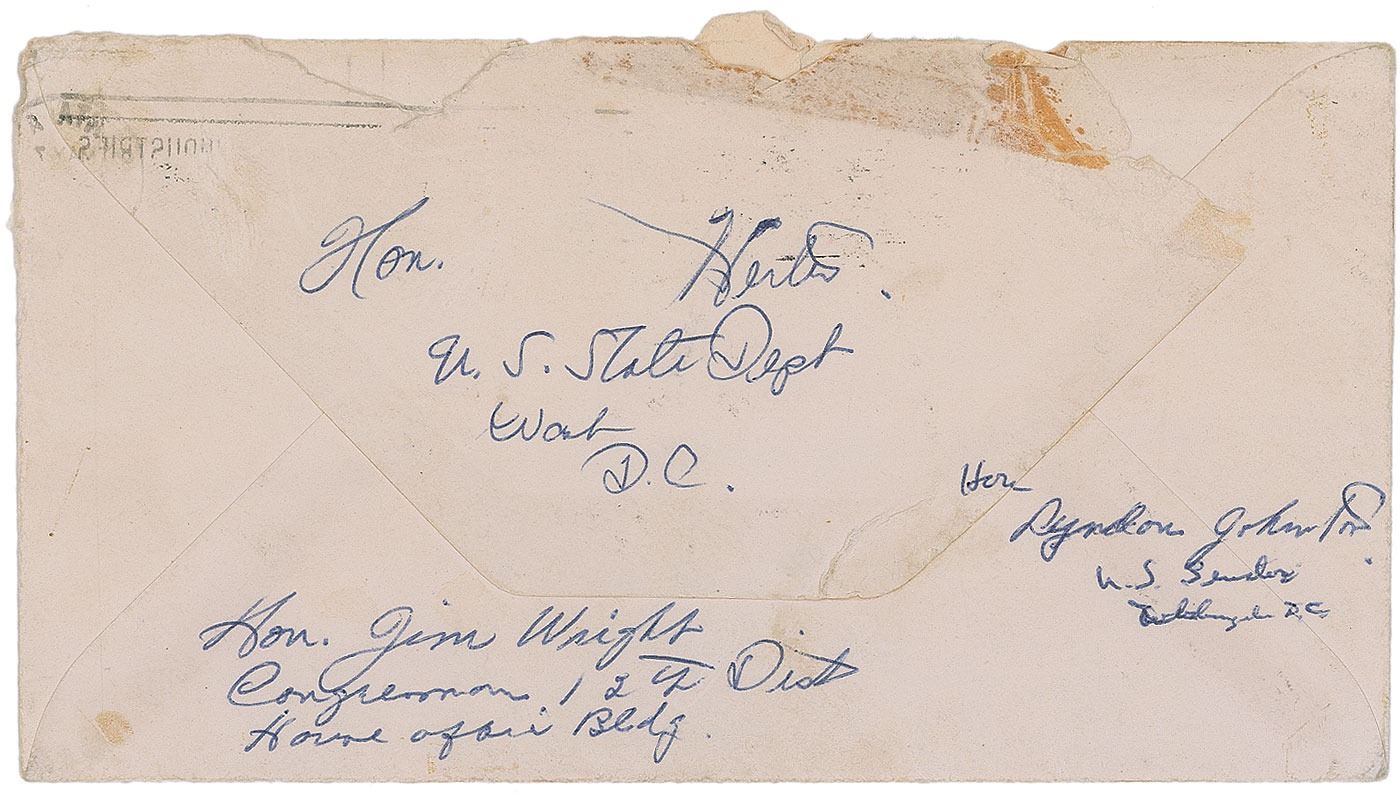 INDUSTRIES
Hon. Herter.
U. S. State Dept
Wash
D.C.
Hon
Lyndon Johnson.
U. S. Senator
D.C.
Hon. Jim Wright
Congressman 12th Dist
House office Bldg.